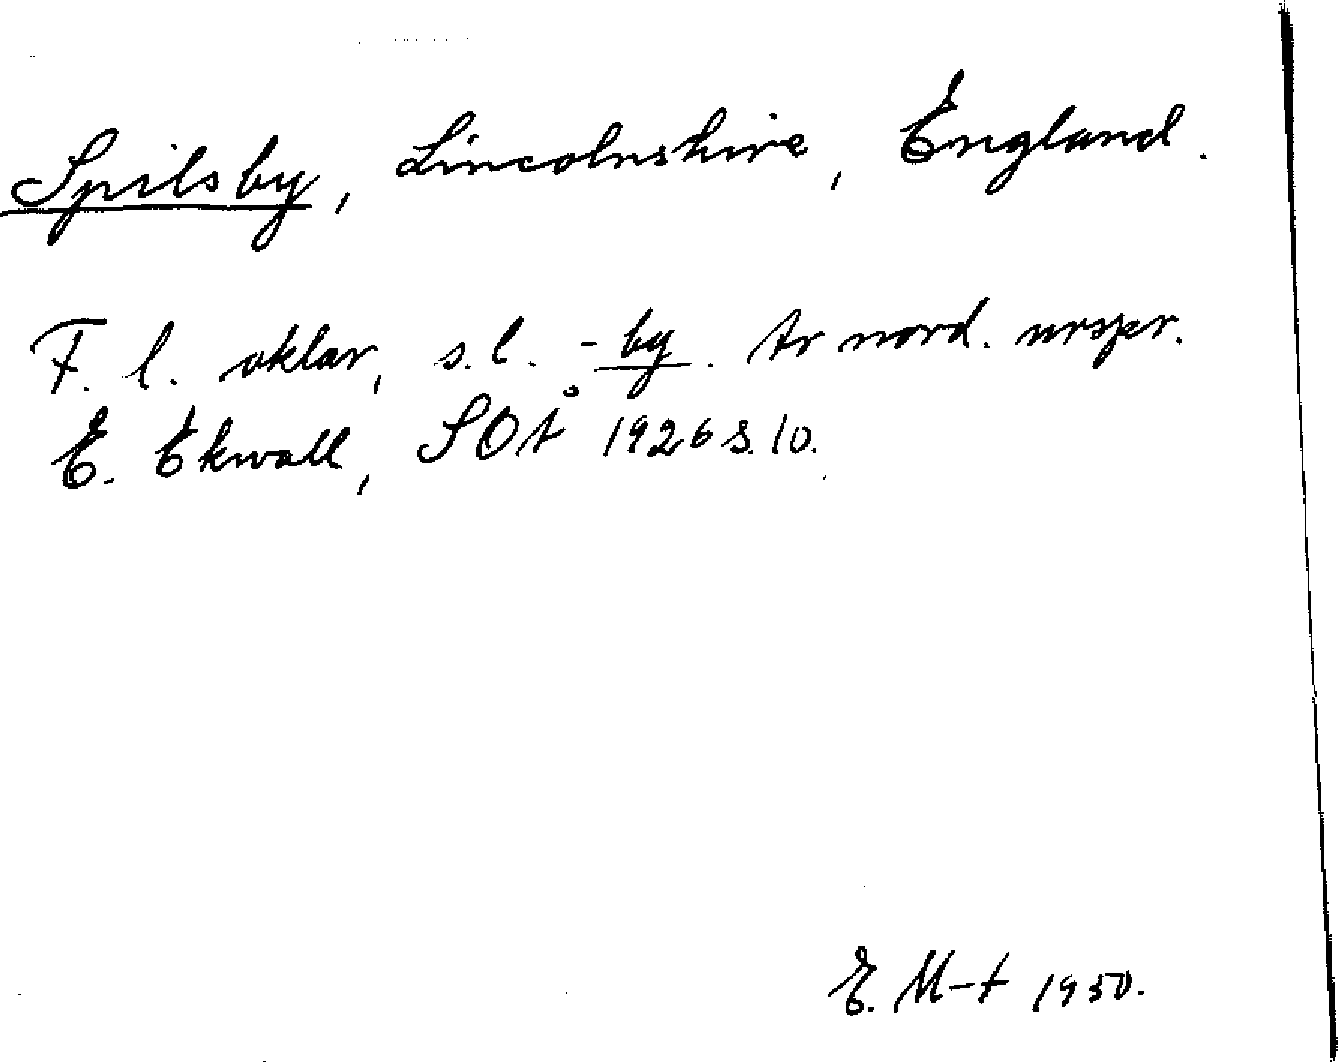 Spilsby, Lincolnshire, England.
F. l. oklar, s.l. -by. Är nord. urspr.
E. Ekwall, SOÅ 1926 s. 10.
E. M-t 1950.